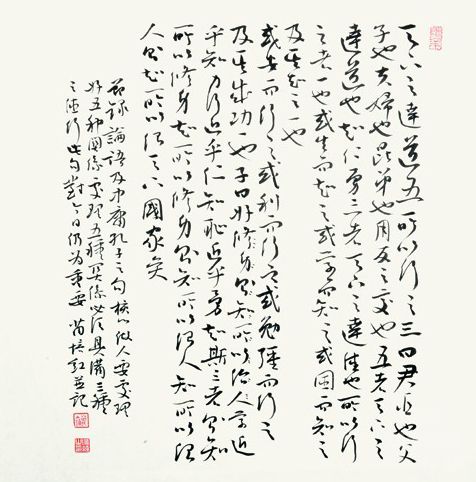 天下之達道五所以行之三曰君臣也父
子也夫婦也昆弟也朋友之交也五者天下之
達道也知仁勇三者天下之達德也所以行
之者一也或生而知之或學而知之或困而知之
及其知之一也
或安而行之或利而行之或勉强而行之
及其成功一也子曰好修身則知所以治人學近
乎知力行近乎仁知恥近乎勇知斯三者則知
所以修身知所以修身則知所以治人知所以治
人則知所以治天下國家矣
節録論語及中庸孔子之句核心做人要處理
好五種關係處理五種關係必須具備三種
之德行此句對今日仍為重要 苗培红並記